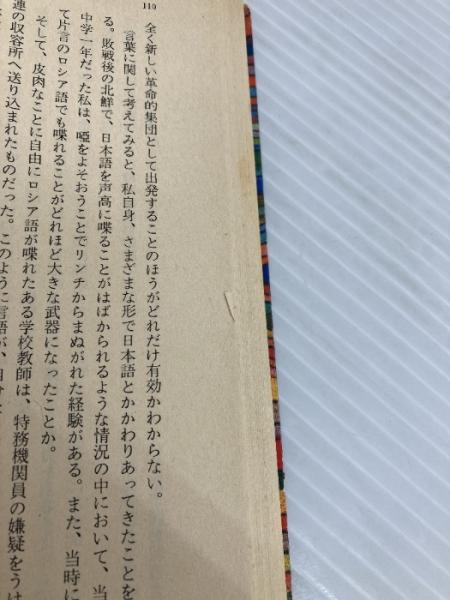 110
全く新しい革命的集団として出発することのほうがどれだけ有効かわからない。
言葉に関して考えてみると、私自身、さまざまな形で日本語とかかわりあってきたことを
る。敗戦後の北鮮で、日本語を声高に喋ることがはばかられるような情況の中において、当
中学一年だった私は、啞をよそおうことでリンチからまぬがれた経験がある。また、当時に
て片言のロシア語でも喋れることがどれほど大きな武器になったことか。
そして、皮肉なことに自由にロシア語が喋れたある学校教師は、特務機関員の嫌疑をうけ
連の収容所へ送り込まれたものだった。このように言語が、